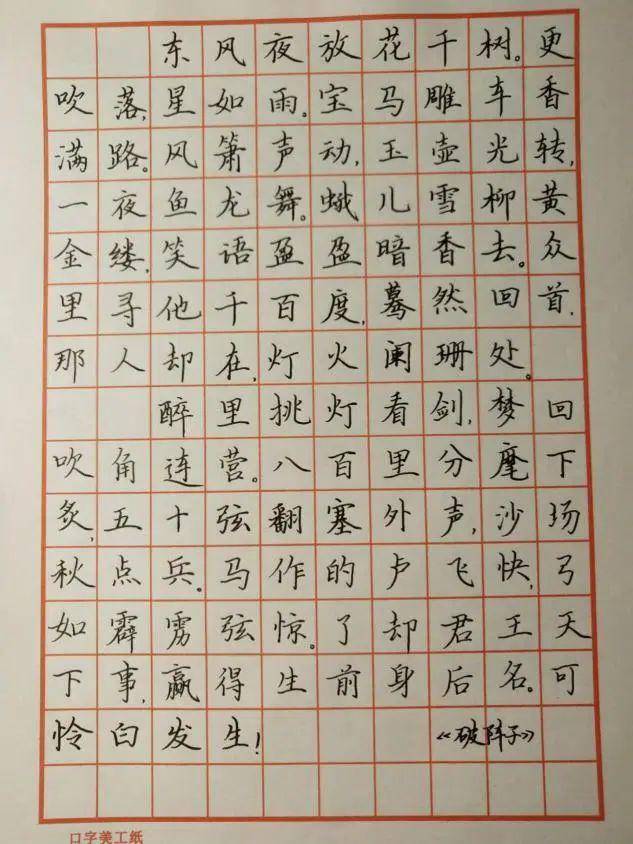 东风夜放花千树。更
吹落,星如雨。宝马雕车香
满路。风箫声动,玉壶光转,
一夜鱼龙舞。蛾儿雪柳黄
金缕,笑语盈盈暗香去。众
里寻他千百度,蓦然回首,
那人却在,灯火阑珊处。
醉里挑灯看剑,梦回
吹角连营。八百里分麾下
炙,五十弦翻塞外声,沙场
秋点兵。马作的卢飞快,弓
如霹雳弦惊。了却君王天
下事,赢得生前身后名。可
怜白发生!《破阵子》
口字美工纸